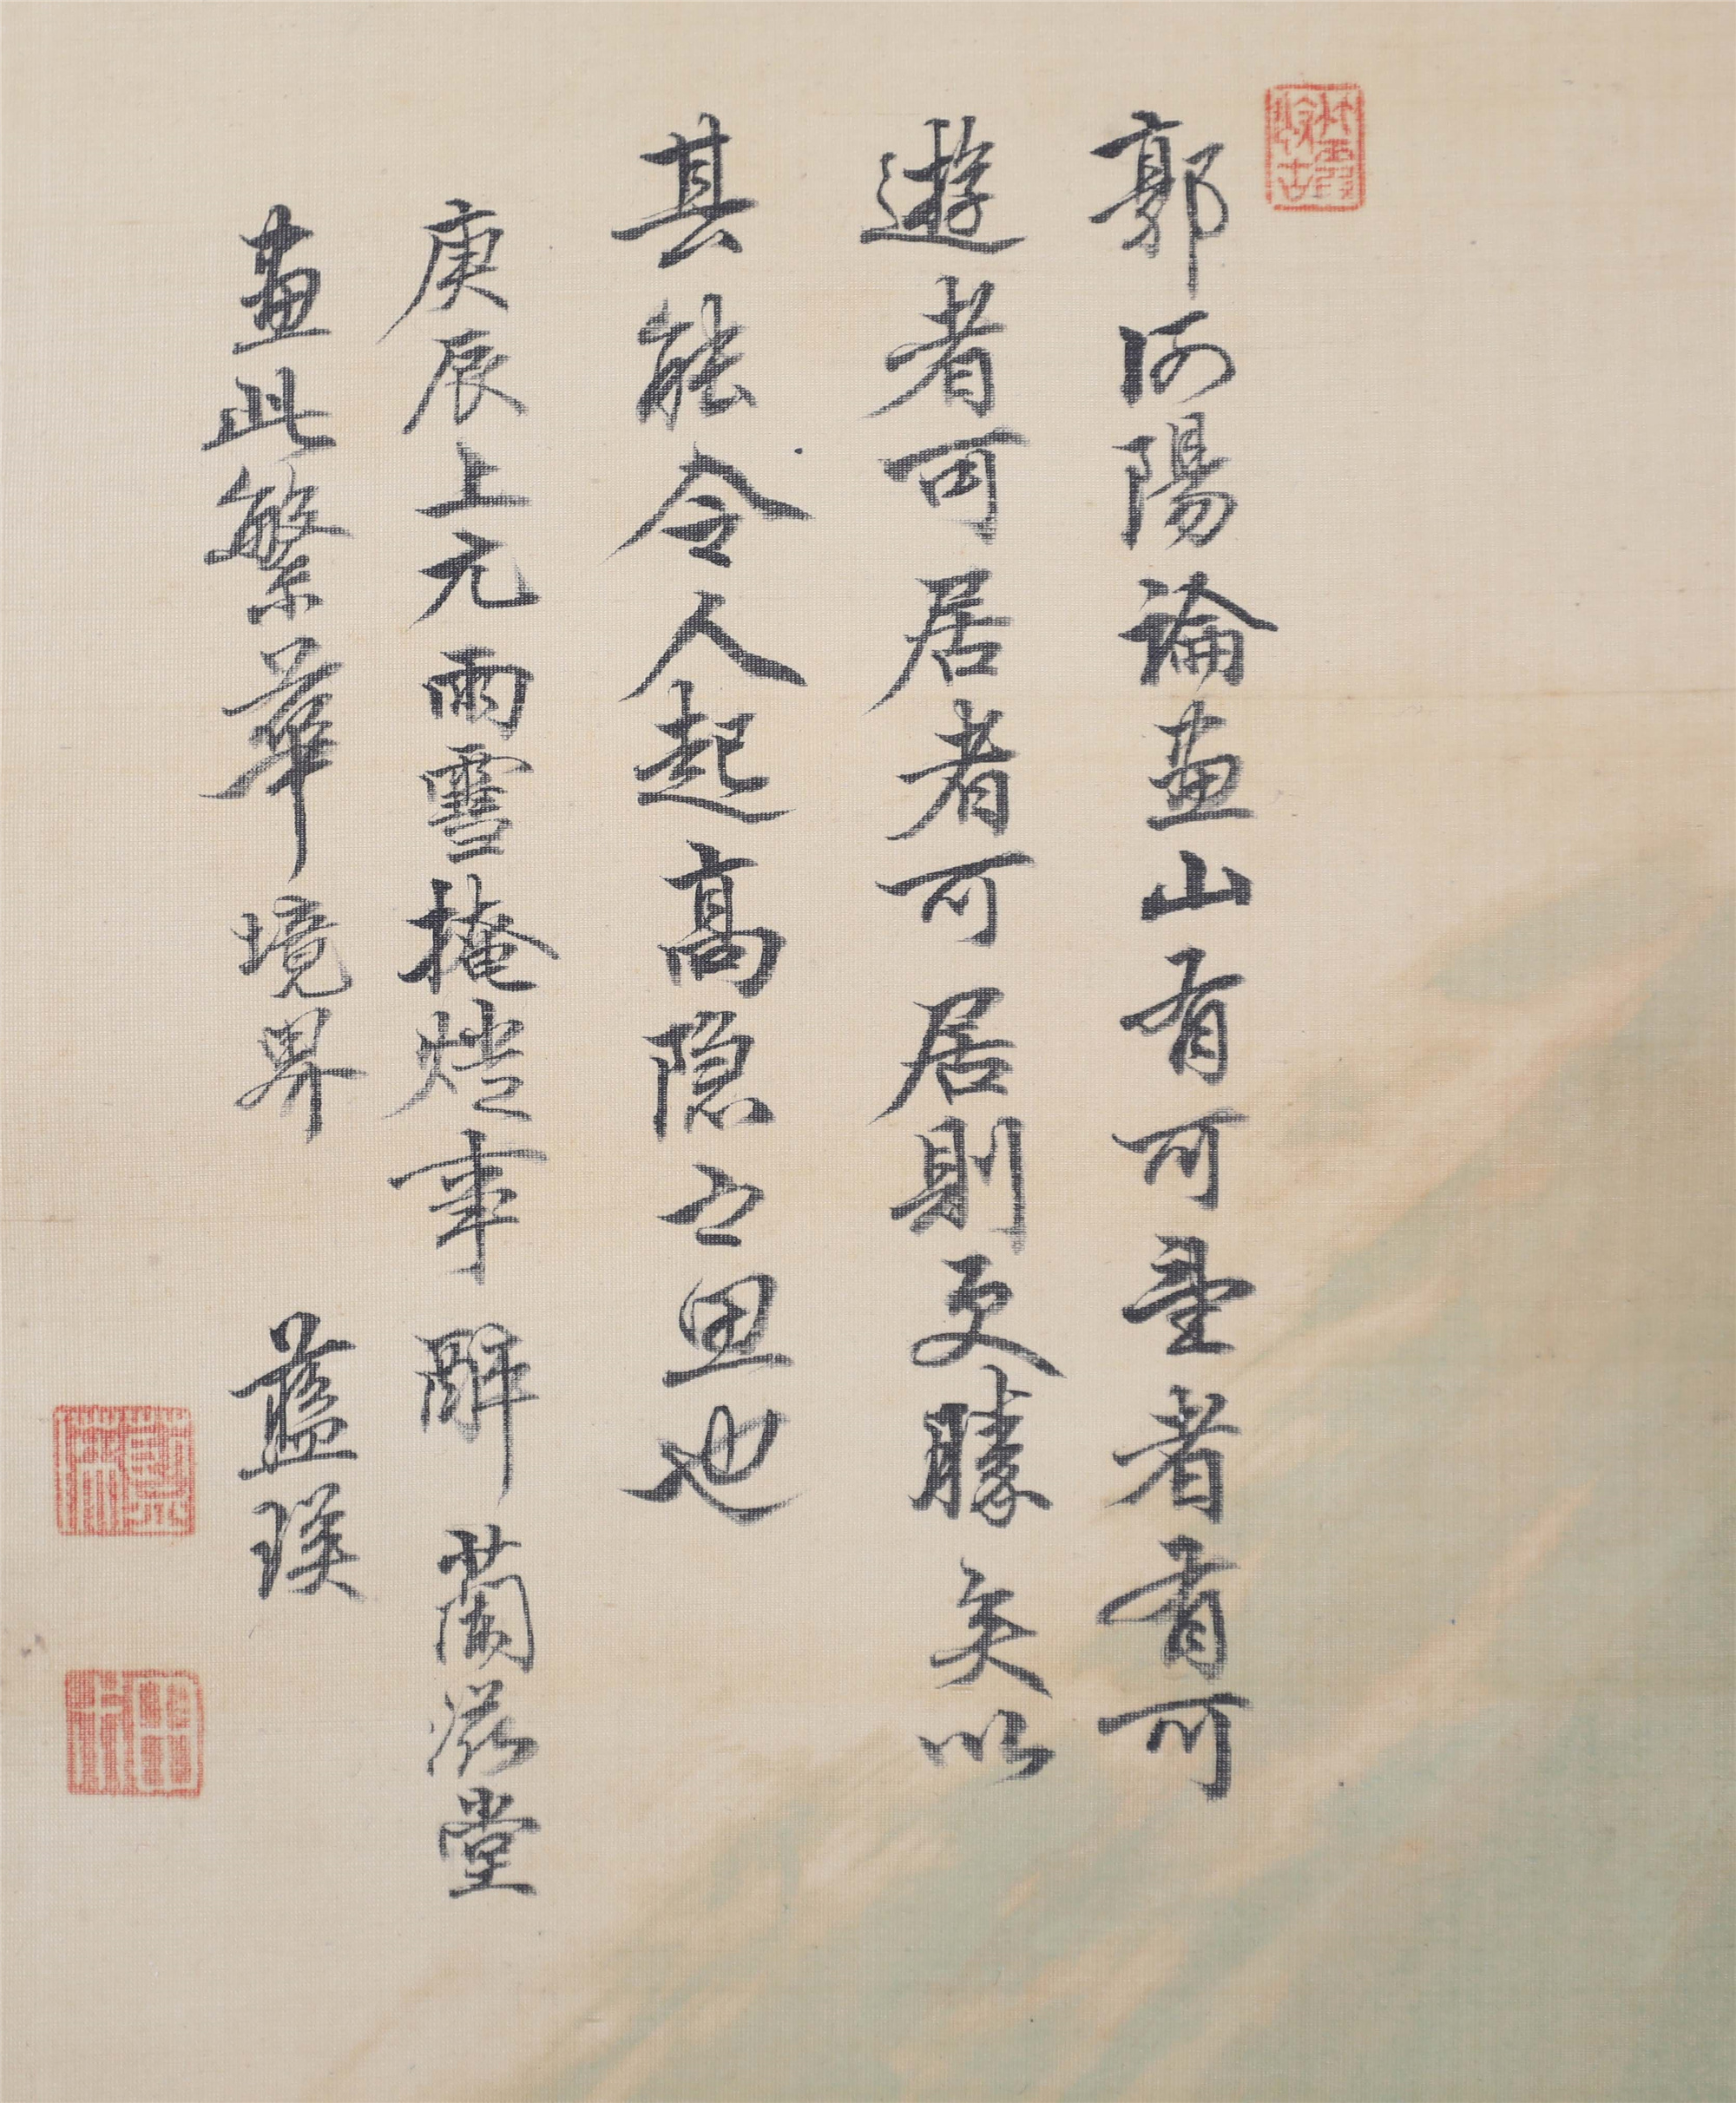 郭河陽論畫山有可望者有可
遊者可居者可居則更勝矣以
其能令人起高隱之思也
庚辰上元雨雪掩燈事醉蘭漪堂
畫此繁華境界 藍瑛